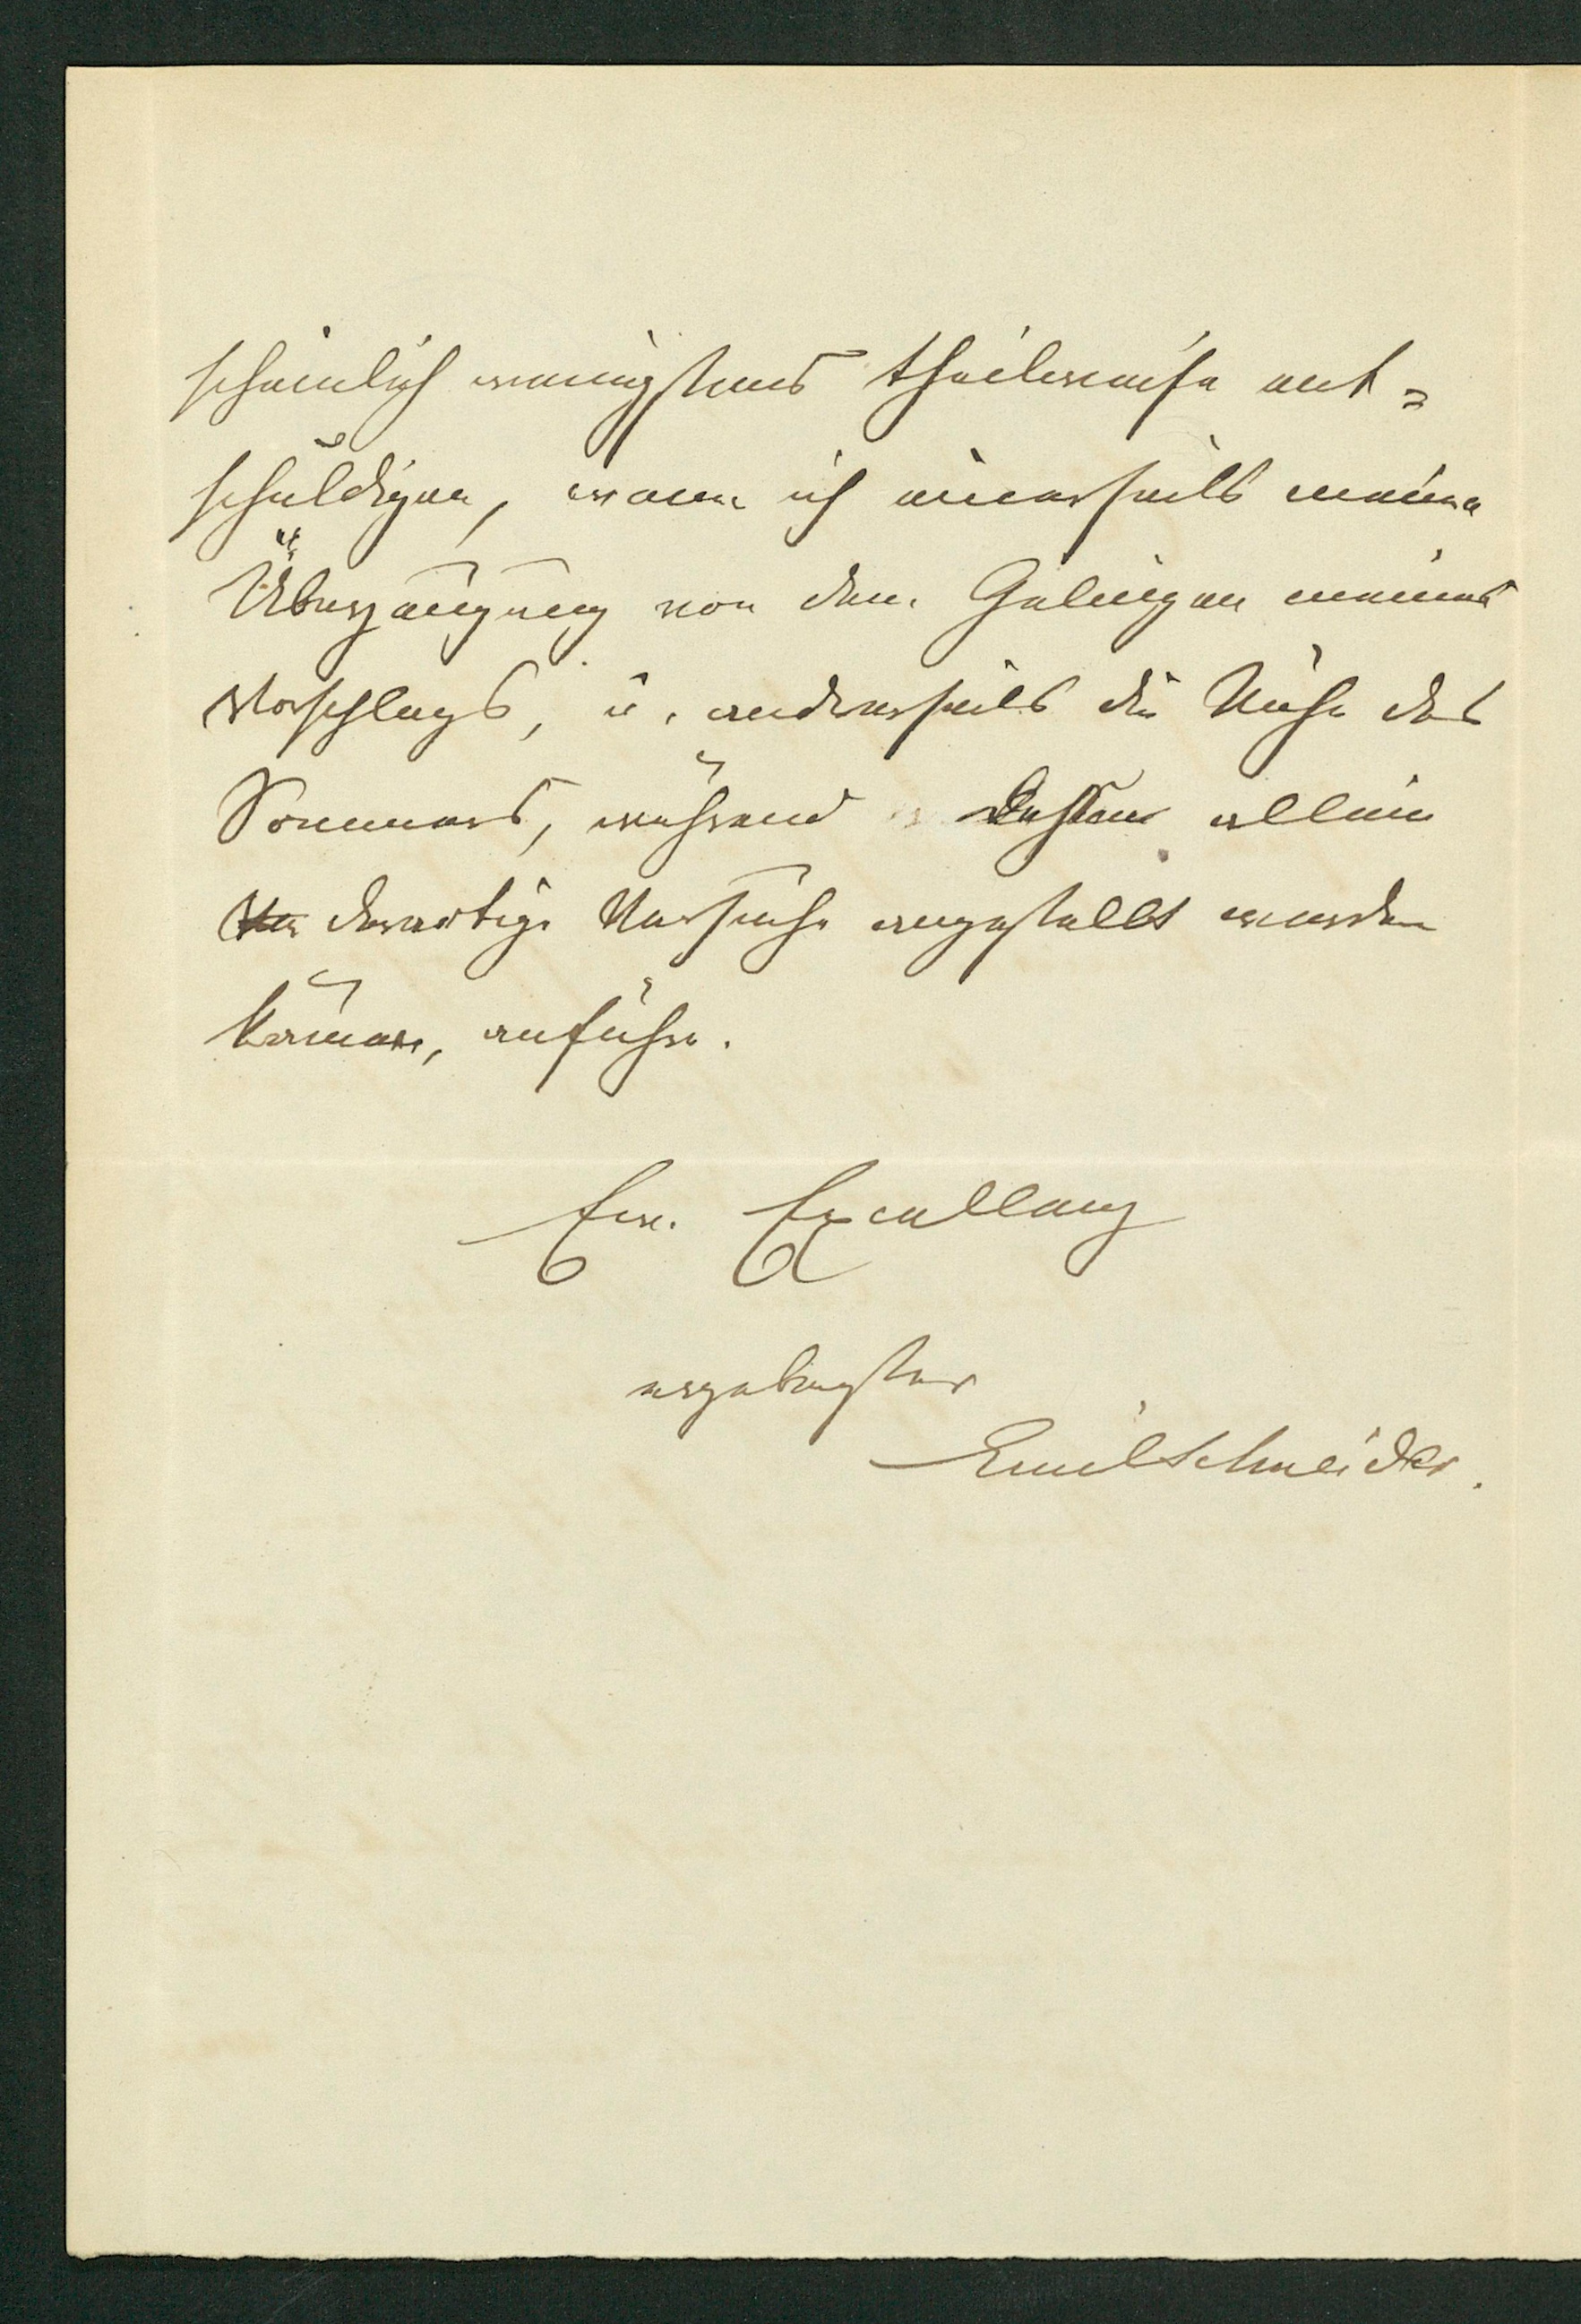 scheinlich wenigstens theilweise ent=
schuldigen, wenn ich einerseits meine
Überzeugung von dem Gelingen meines
Vorschlags, u. anderseits die Nähe des
Sommers, während dessen allein
derartige Versuche angestellt werden
können, anführe.
Ew. Excellenz
ergebenster
Emil Schneider.